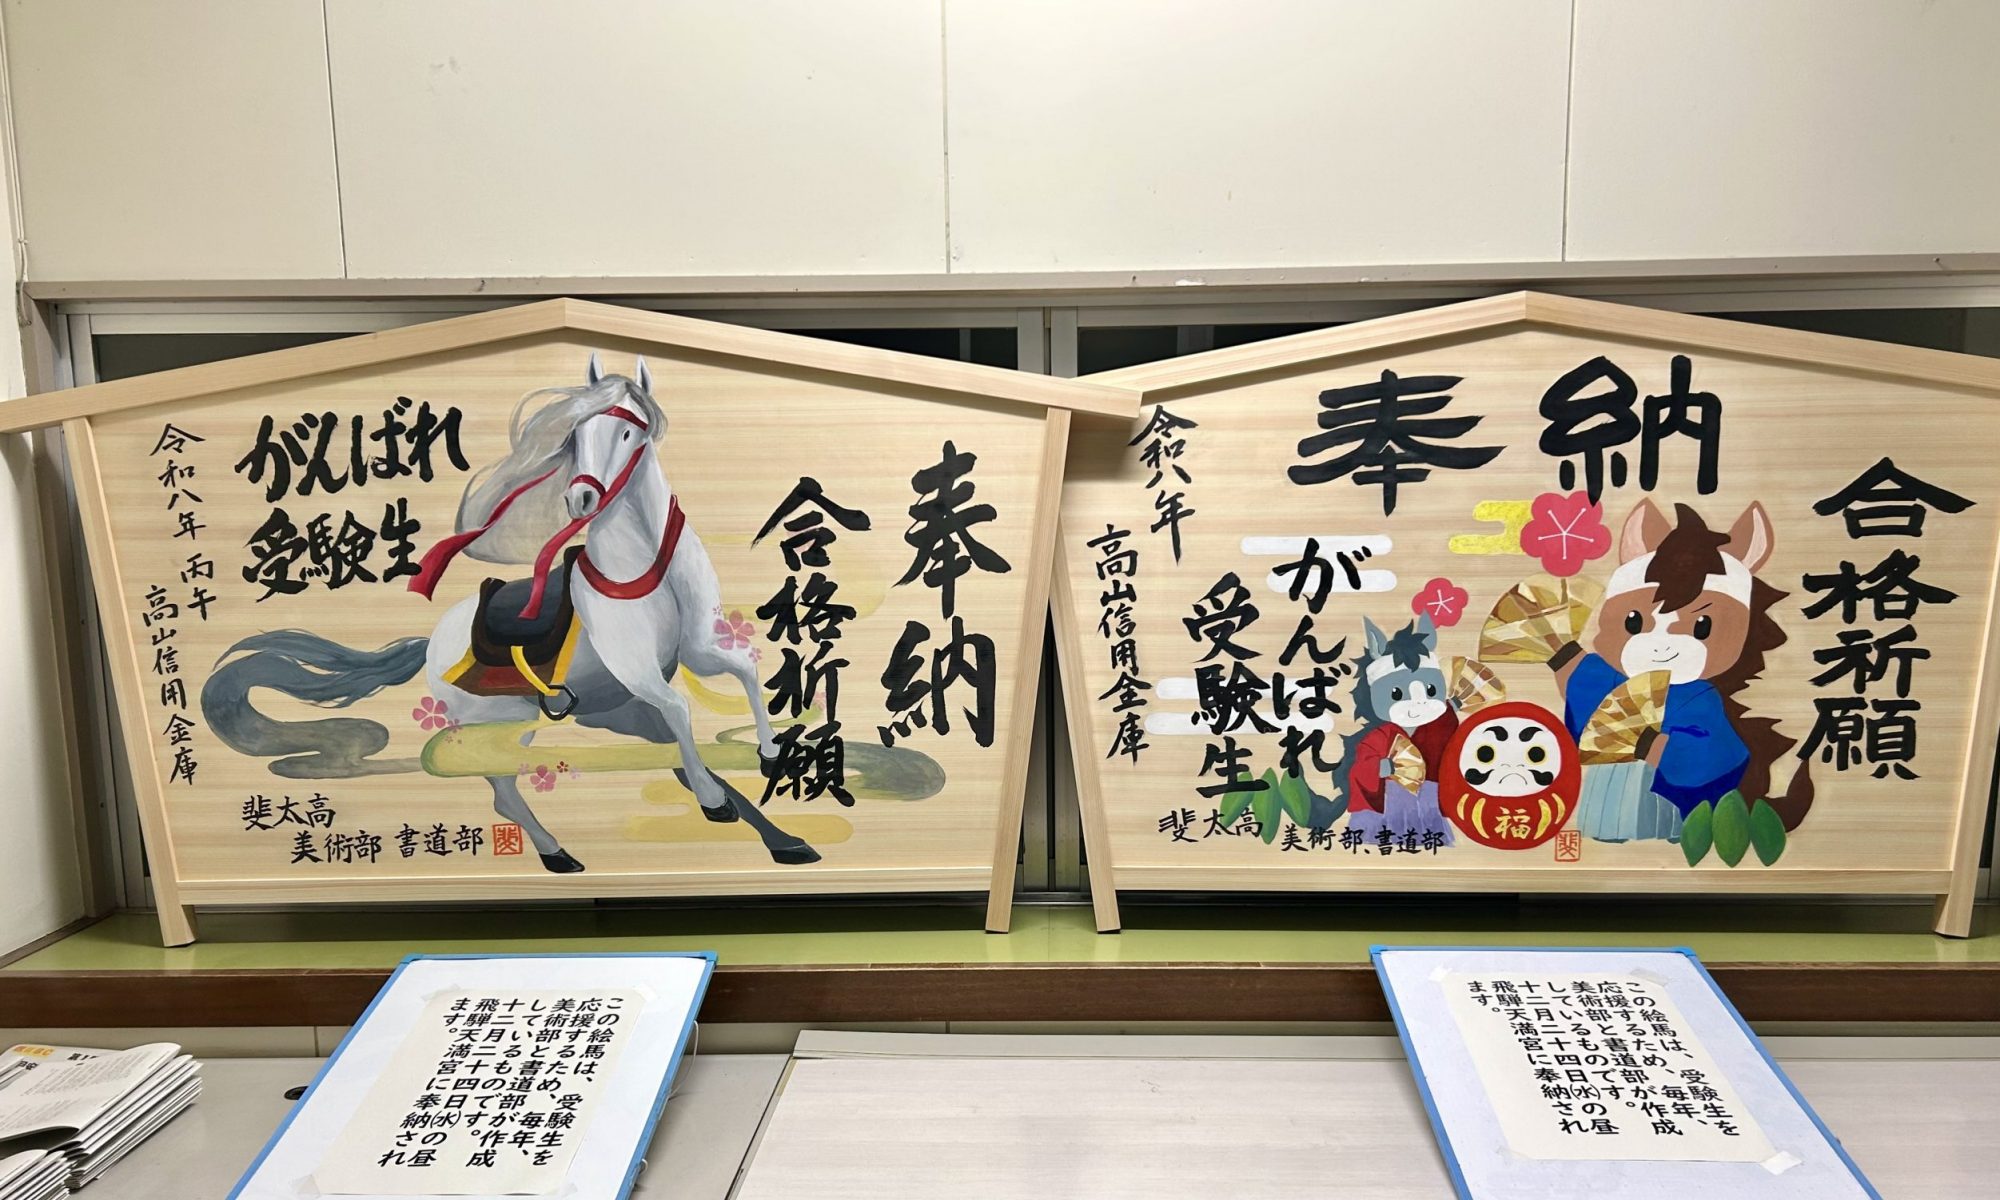 奉納
合格祈願
がんばれ
受験生
令和八年 丙午
高山信用金庫
斐太高
美術部 書道部
斐
奉納
合格祈願
がんばれ
受験生
令和八年
高山信用金庫
福
斐太高 美術部、書道部
斐
この絵馬は、受験生を
応援するため、毎年、
美術部と書道部が作成
しているものです。
十二月二十四日㈬の昼
飛騨天満宮に奉納され
ます。
この絵馬は、受験生を
応援するため、毎年、
美術部と書道部が作成
しているものです。
十二月二十四日㈬の昼
飛騨天満宮に奉納され
ます。